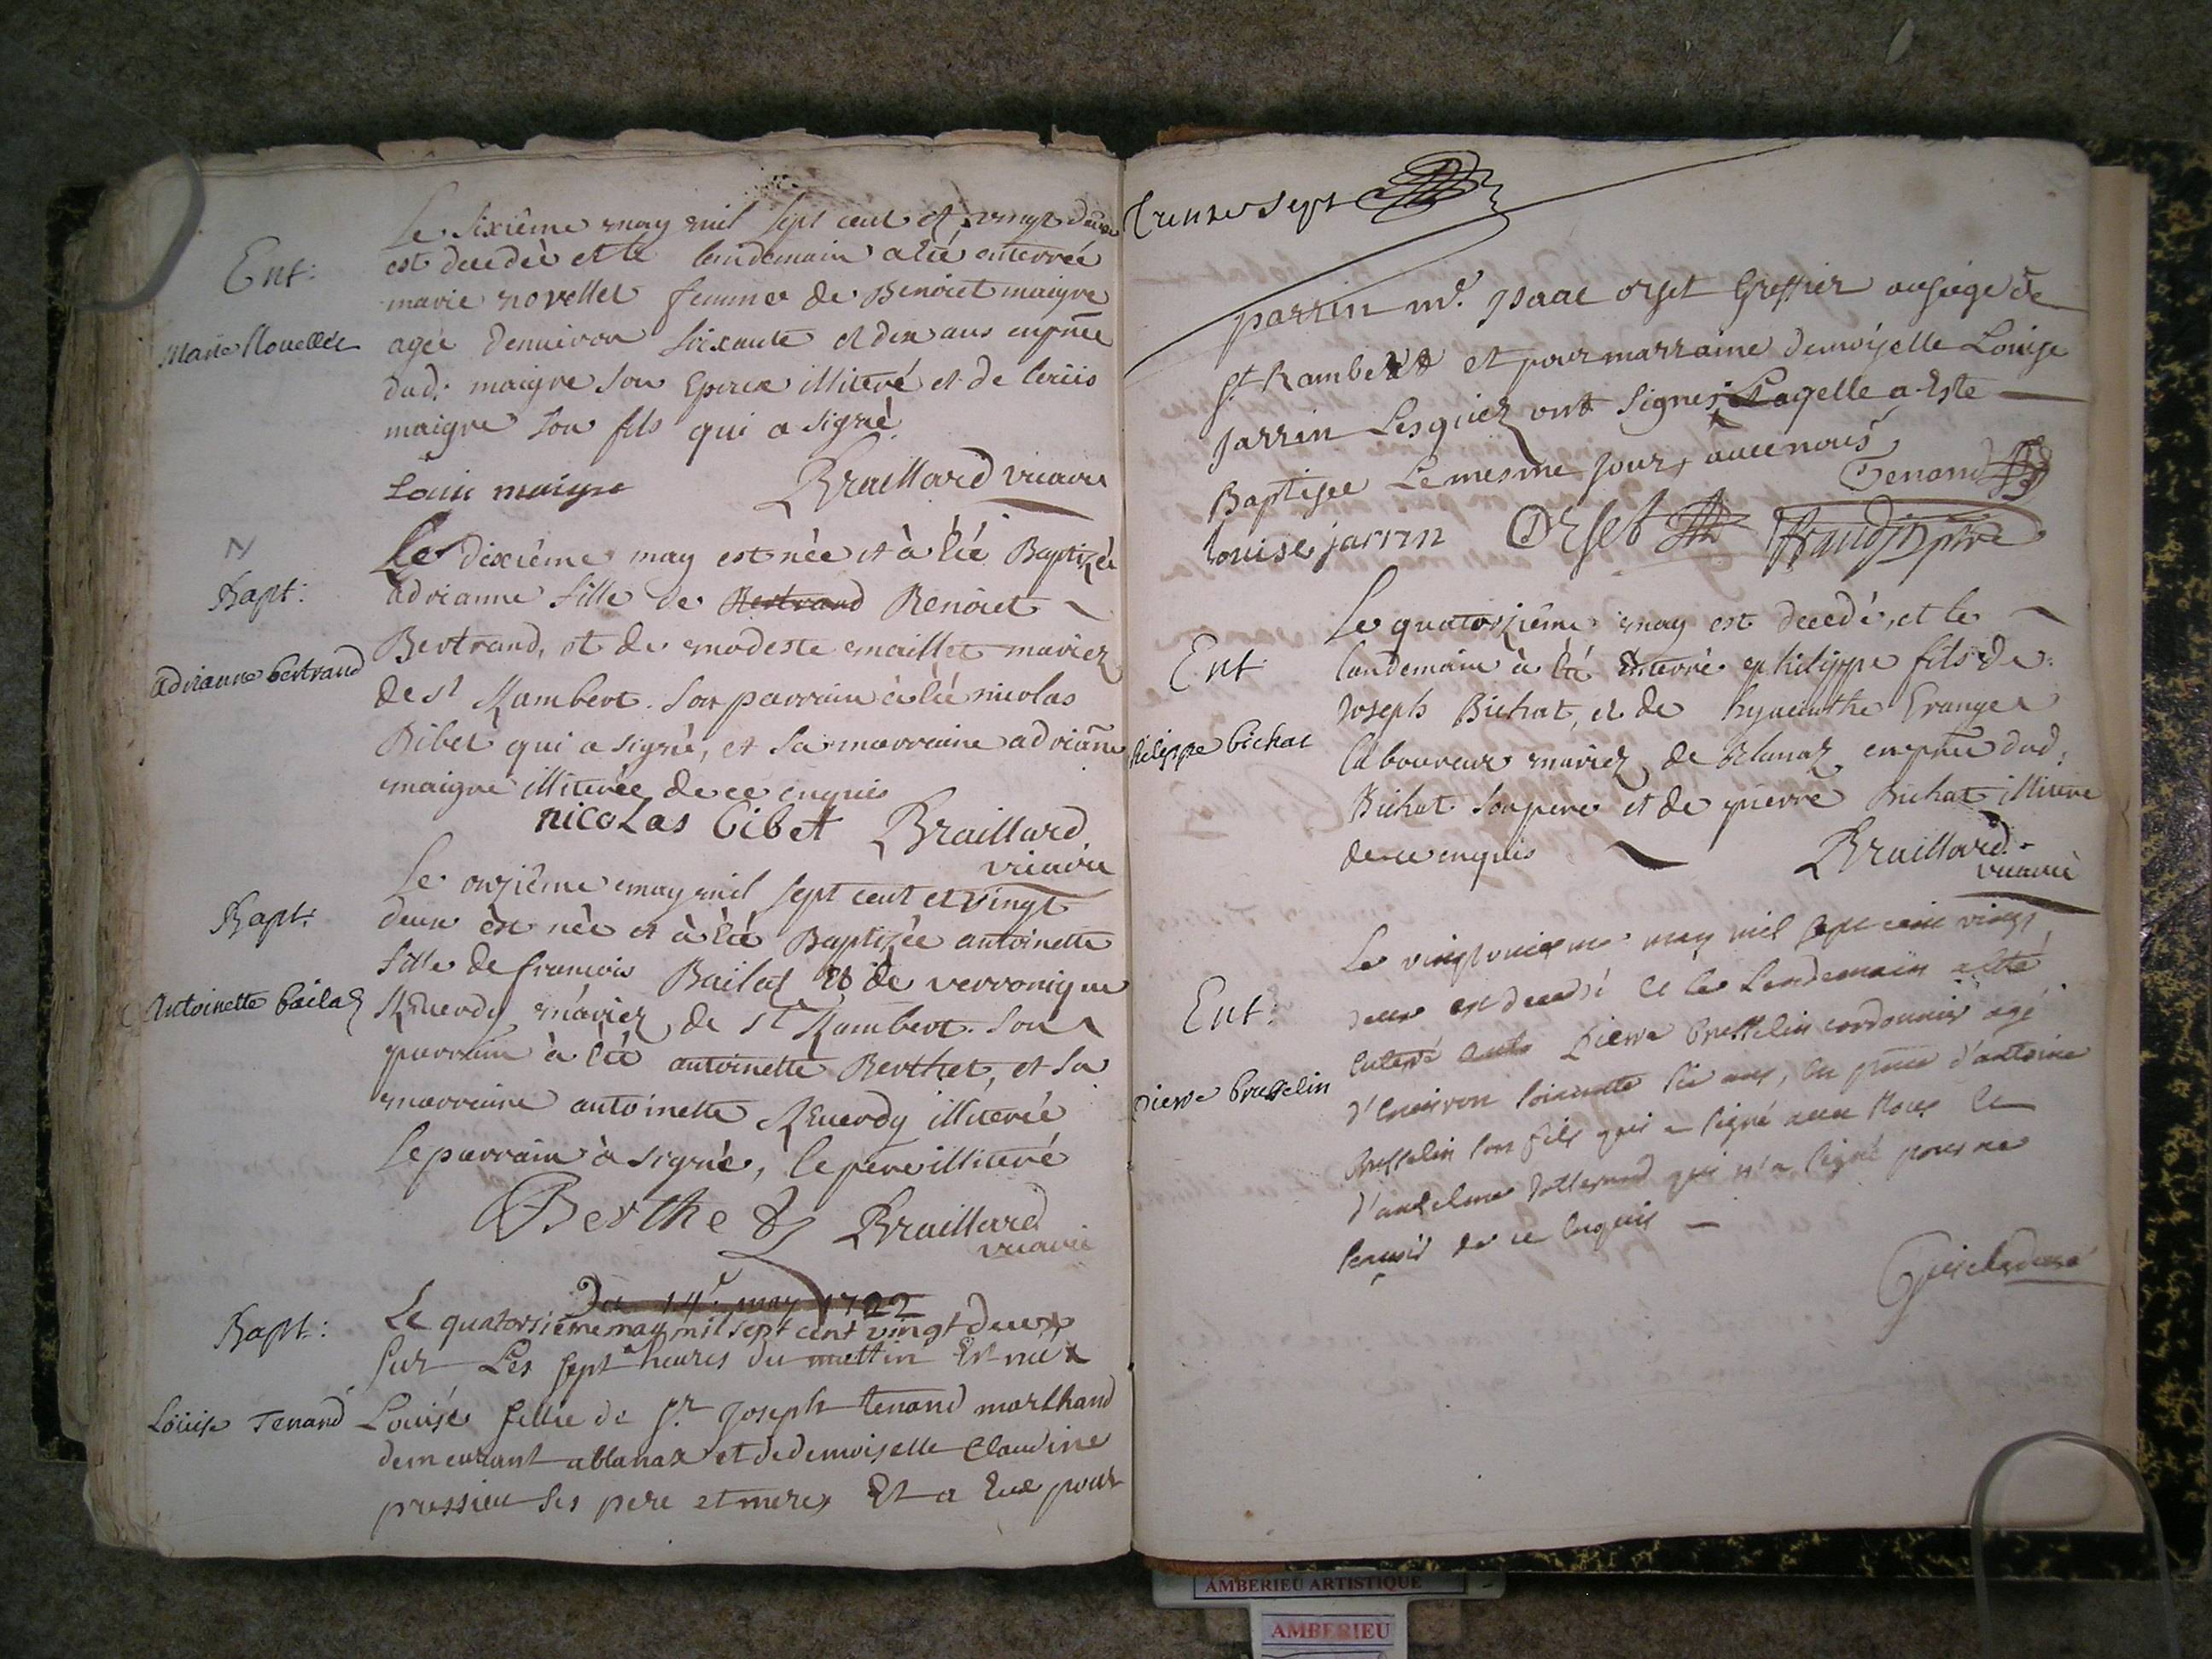 Ent:
Marie Nouellet
Le sixième may mil sept cent et vingt deux
est decedèe et le lendemain a été enterrée
marie novellet femme de Benoict maigre
agèe denviron soixante et dix ans enpñce
dud: maigre son Epoux illiteré et de
maigre son fils qui a signé
Louis maigre Braillard vicaire
Bapt:
adrianne bertrand
Le dixième may est nèe et à été Baptizèe
adrianne fille de Bertrand Benoict
Bertrand, et de modeste maillet mariez
de st Rambert. Son parrain à été nicolas
Bibet qui a signé, et sa marraine adriãne
maigre illiterée de ce enquis
nicolas bibet Braillard
vicaire
Bapt:
Antoinette bailaz
Le onzième may mil sept cent et vingt
deux est nèe et à été Baptizèe antoinette
fille de francois Bailat et de verronique
mariez de st Rambert. Son
parrain à été antoinette Berthet, et sa
marraine antoinette illiterée
le parrain à signé, le pere illiteré
Berthet Braillard
vicaire
Bapt:
Louise Tenand
Du 14e may 1722
Le quatorsième may mil sept cent vingt deux
sur Les sept heures du mattin Est née
Louise fillie de sr Joseph tenand marthand
demeurant ablanaz et de demoiselle Claudine
pressieu ses pere et mere, Et a Eue pour
Trente sept
parrin mr. Isaac orset Greffier au siege de
st Rambert et pour marraine demoiselle Louise
Jarrin Lesquiez ont signes Laqelle a Este
Baptisee Le mesme Jour, avec nous
Tenand
louise jarrin Orset
Ent
philippe bichat
Le quatorzième may est decedé, et le
landemain à été enterré philippe fils de
Joseph Bichat, et de hyacinthe Granger
laboureur mariez de Blanaz enpñce dud:
Bichat son pere et de pierre Bichat illiteré
de ce enquis Braillard
vicaire
Ent:
Pierre brusselin
Le may mil sept cent vingt
deux est decedé et le lendemain a été
enterré Pierre Brusselin cordonnier agé
d'environ soixante six ans, en pñce d'antoine
Brusselin son fils qui a signé avec Nous et
d'anthelme qui n'a signé pour ne
sçavoir de ce enquis